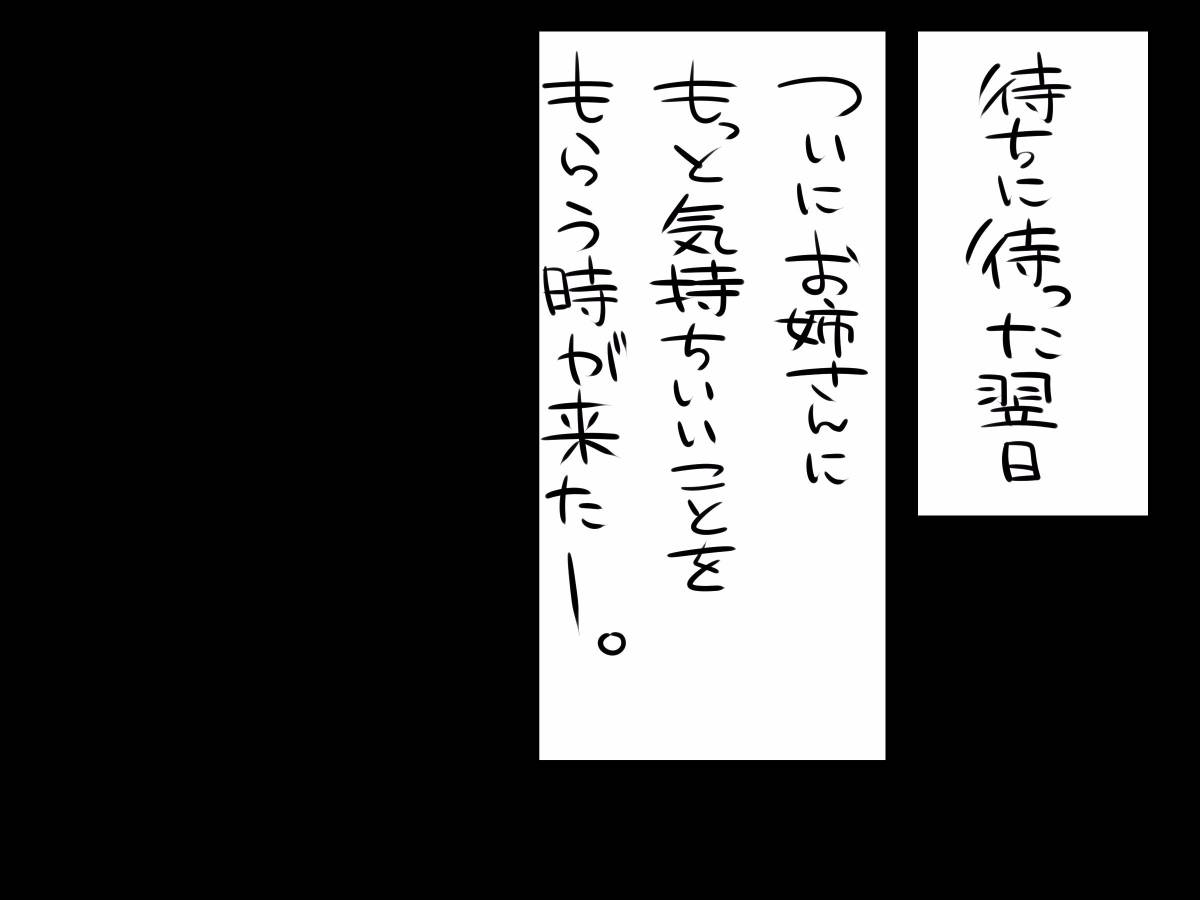 待ちに待った翌日
ついにお姉さんに
もっと気持ちいいことを
もらう時が来たー。